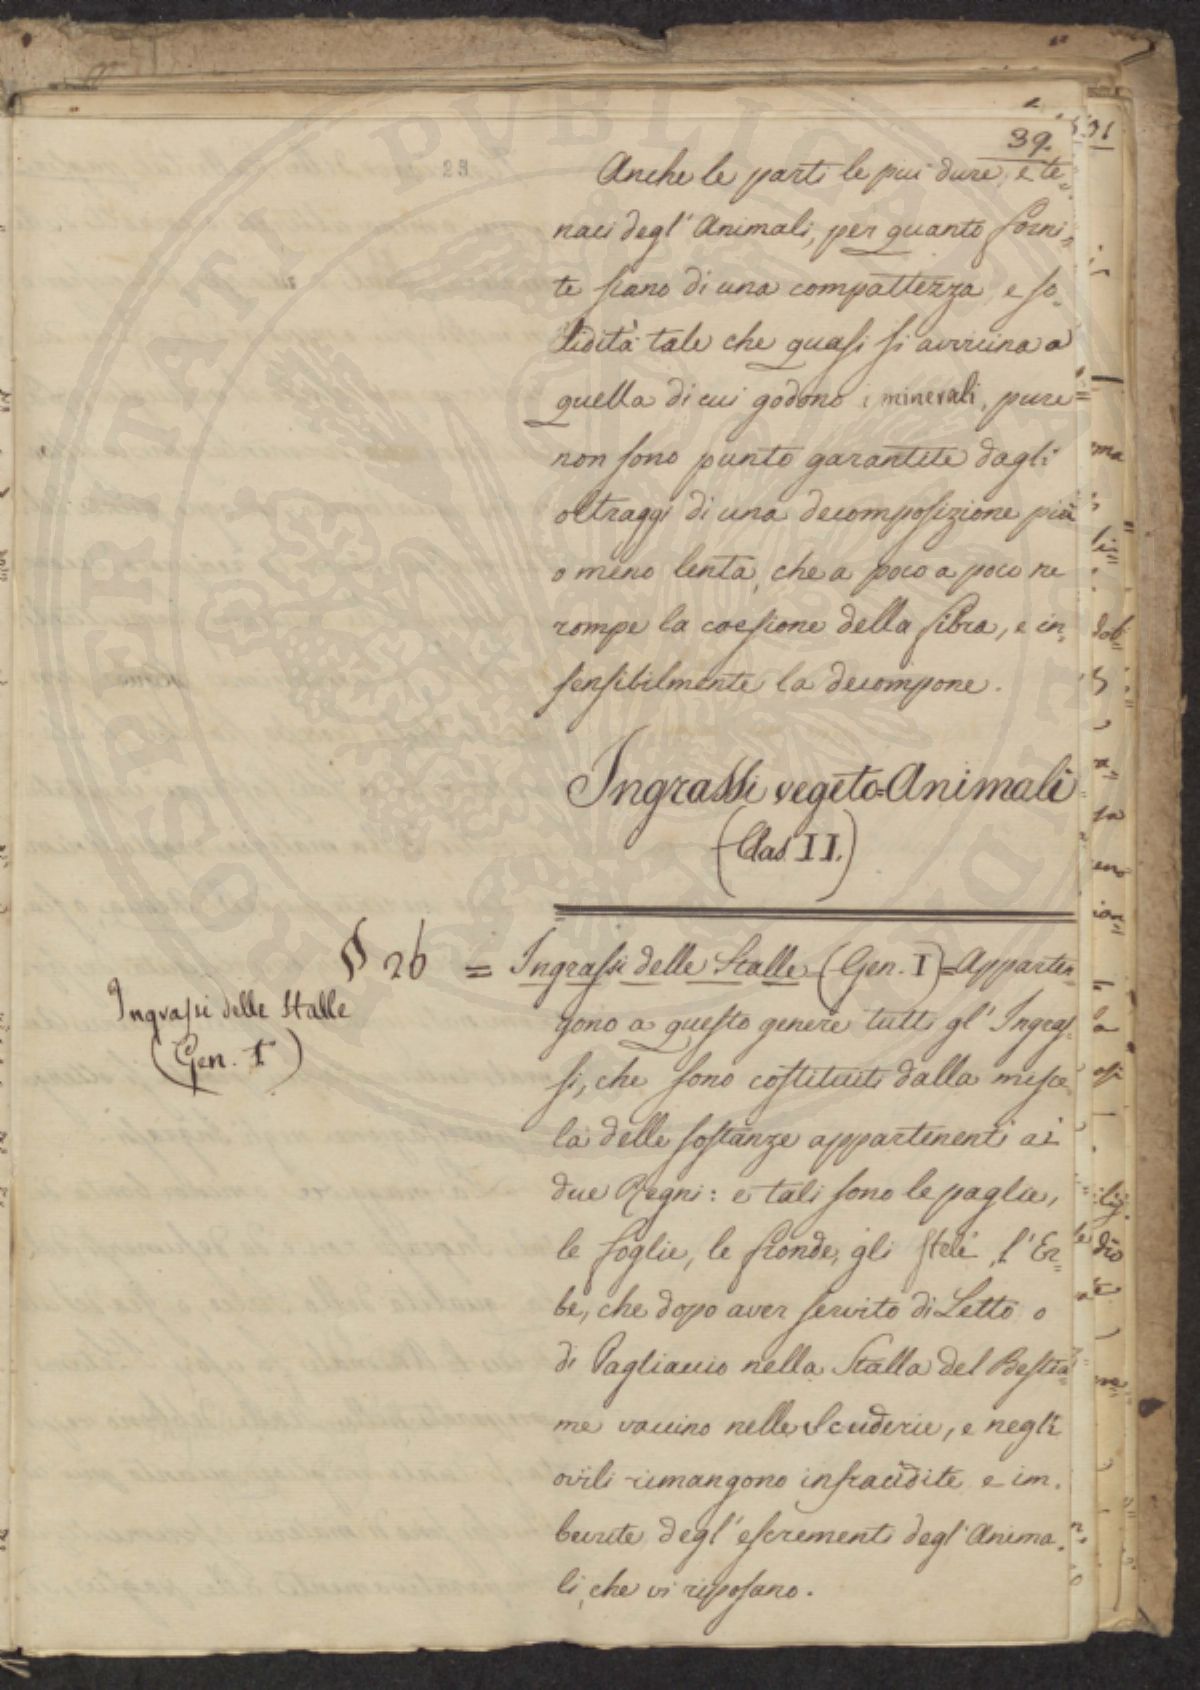 39.
Anche le parti le piú dure, e te=
naci degl' Animali, per quanto forni=
te siano di una compattezza e so=
lidità tale che quasi si avvicina a
quella di cui godono i minerali, pure
non sono punto garantite dagli
oltraggi di una decomposizione più
o meno lenta, che a poco a poco ne
rompe la coesione della fibra, e in=
sensibilmente la decompone.
Ingrassi vegeto=Animali
(Clas II.)
§ 26 = Ingrassi delle Stalle (Gen. I)= Apparten
Ingrassi delle Stalle
(Gen. I)
gono a questo genere tutti gl' Ingras=
si, che sono costituiti dalla misce
la delle sostanze appartenenti ai
due Regni: e tali sono le paglie,
le foglie, le fronde, gli steli, l' Er=
be, che dopo aver servito di Letto o
di Pagliaccio nella Stalla del Bestia=
me vaccino nelle Scuderie, e negli
ovili rimangono infracidite e im=
bevute degl' escrementi degl' Anima=
li, che vi riposano.
PROSPERITATI PUBLICAE